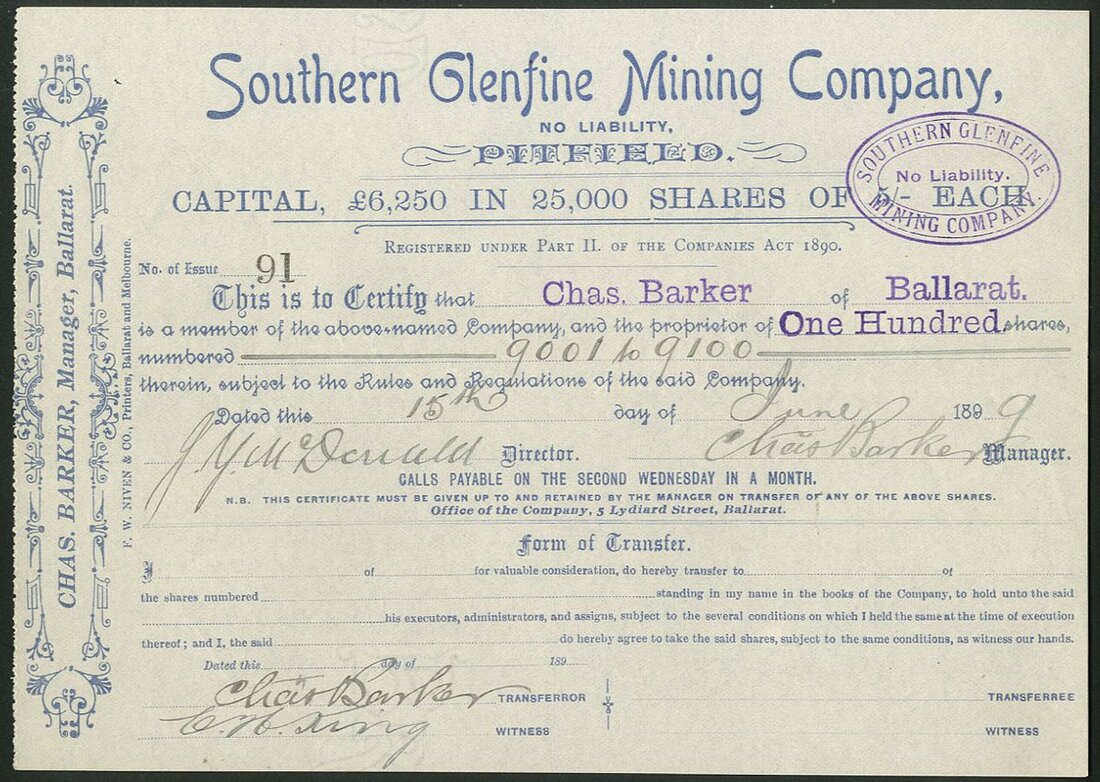 Southern Glenfine Mining Company,
NO LIABILITY,
PITFIELD.
CAPITAL, £6,250 IN 25,000 SHARES OF 5/- EACH
SOUTHERN GLENFINE
No Liability.
MINING COMPANY.
REGISTERED UNDER PART II. OF THE COMPANIES ACT 1890.
No. of Issue 91
This is to Certify that Chas. Barker of Ballarat.
is a member of the above-named Company, and the proprietor of One Hundred shares,
numbered 9001 to 9100
therein, subject to the Rules and Regulations of the said Company.
Dated this 15th day of June 1899
McDonald Director. Chas Barker Manager.
CALLS PAYABLE ON THE SECOND WEDNESDAY IN A MONTH.
N.B. THIS CERTIFICATE MUST BE GIVEN UP TO AND RETAINED BY THE MANAGER ON TRANSFER OF ANY OF THE ABOVE SHARES.
Office of the Company, 5 Lydiard Street, Ballarat.
Form of Transfer.
I of for valuable consideration, do hereby transfer to of
the shares numbered standing in my name in the books of the Company, to hold unto the said
his executors, administrators, and assigns, subject to the several conditions on which I held the same at the time of execution
thereof; and I, the said do hereby agree to take the said shares, subject to the same conditions, as witness our hands.
Dated this day of 189
Chas Barker TRANSFERROR TRANSFERREE
WITNESS WITNESS
CHAS. BARKER, Manager, Ballarat.
F. W. NIVEN & CO., Printers, Ballarat and Melbourne.